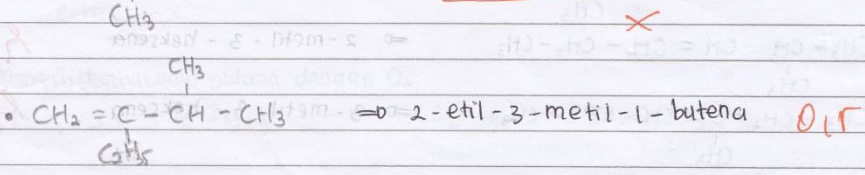 CH3
CH3
• CH2 = C - CH - CH3 ⇒ 2-etil-3-metil-1-butena 0,5
C2H5